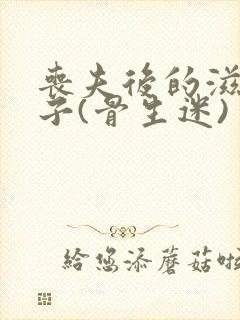 喪夫後的滋
子(骨生迷)
給您添蘑菇啦